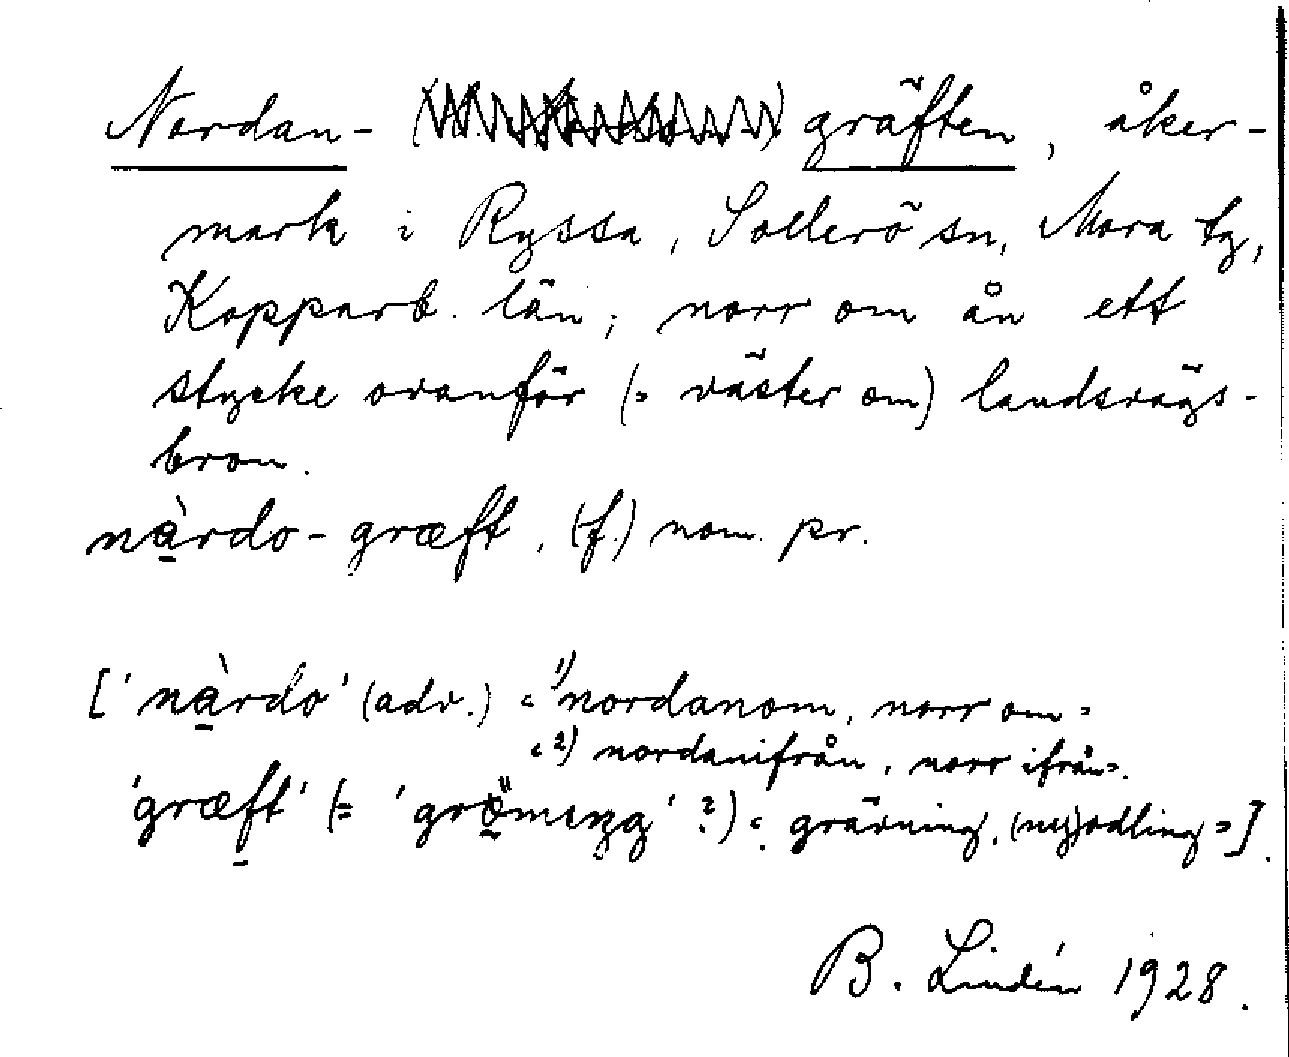 Nordan- gräften, åker-
mark i Ryssa, Sollerö sn, Mora tg,
Kopparb. län; norr om ån ett
stycke ovanför (= väster om) landsvägs-
bron.
nàrdo-græft, (f.) nom. pr.
['nàrdo' (adv.) = ¹) nordanom, norr om =
= ²) nordanifrån, norr ifrån =.
'græft' (= 'grömeŋg' ?) = grävning, (ny)odling =].
B. Lindén 1928.